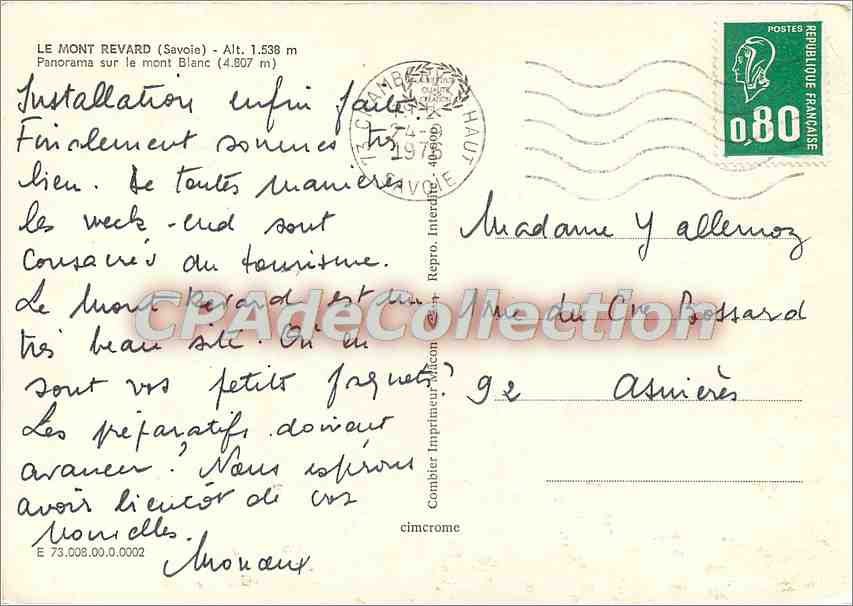 LE MONT REVARD (Savoie) - Alt. 1.538 m
Panorama sur le mont Blanc (4.807 m)
Installation enfin faite.
Finalement sommes très
bien. De toutes manières
les week-end sont
consacrés du tourisme.
Le Mont Revard est un
très beau site. Où en
sont vos petits projets?
Les préparatifs doivent
avancer? Nous espérons
avoir bientôt de vos
nouvelles.
E 73.008.00.0.0002
73 CHAMB HAUT
1976
SAVOIE
Combier Imprimeur Mâcon
Repro. Interdite -
cimcrome
POSTES
REPUBLIQUE FRANÇAISE
0,80
Madame Y allemoz
1 rue du Cre Bossard
92 Asnières
CPAdeCollection